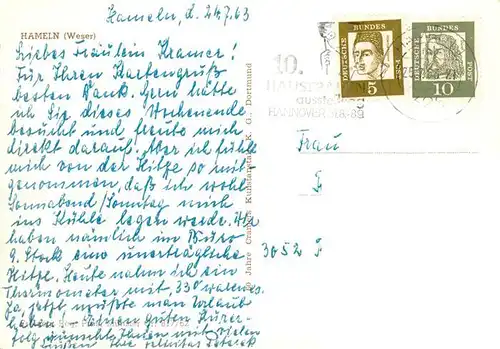 Hameln, d. 24.7.63
HAMELN (Weser)
Liebes Fräulein Kramer!
Für Ihren Kartengruß
besten Dank. Gern hätte
ich Sie dieses Wochenende
besucht und freute mich
direkt darauf. Aber ich fühle
mich von der Hitze so mit-
genommen, daß ich wohl
Sonnabend/Sonntag mich
ins Kühle legen werde. Wir
haben nämlich im Büro
9. Stock eine unerträgliche
Hitze. Heute nahm ich ein
Thermometer mit, 33° waren es.
Ja, jetzt müßte man Urlaub
haben. Ihnen guten Kurer-
folg wünscht Ihnen mit vielen
Grüßen Ihre
Jahre Kunstanstalt K. G., Dortmund
DEUTSCHE BUNDES POST
5
DEUTSCHE BUNDES POST
10
10.
HANNOVER
Frau
3052